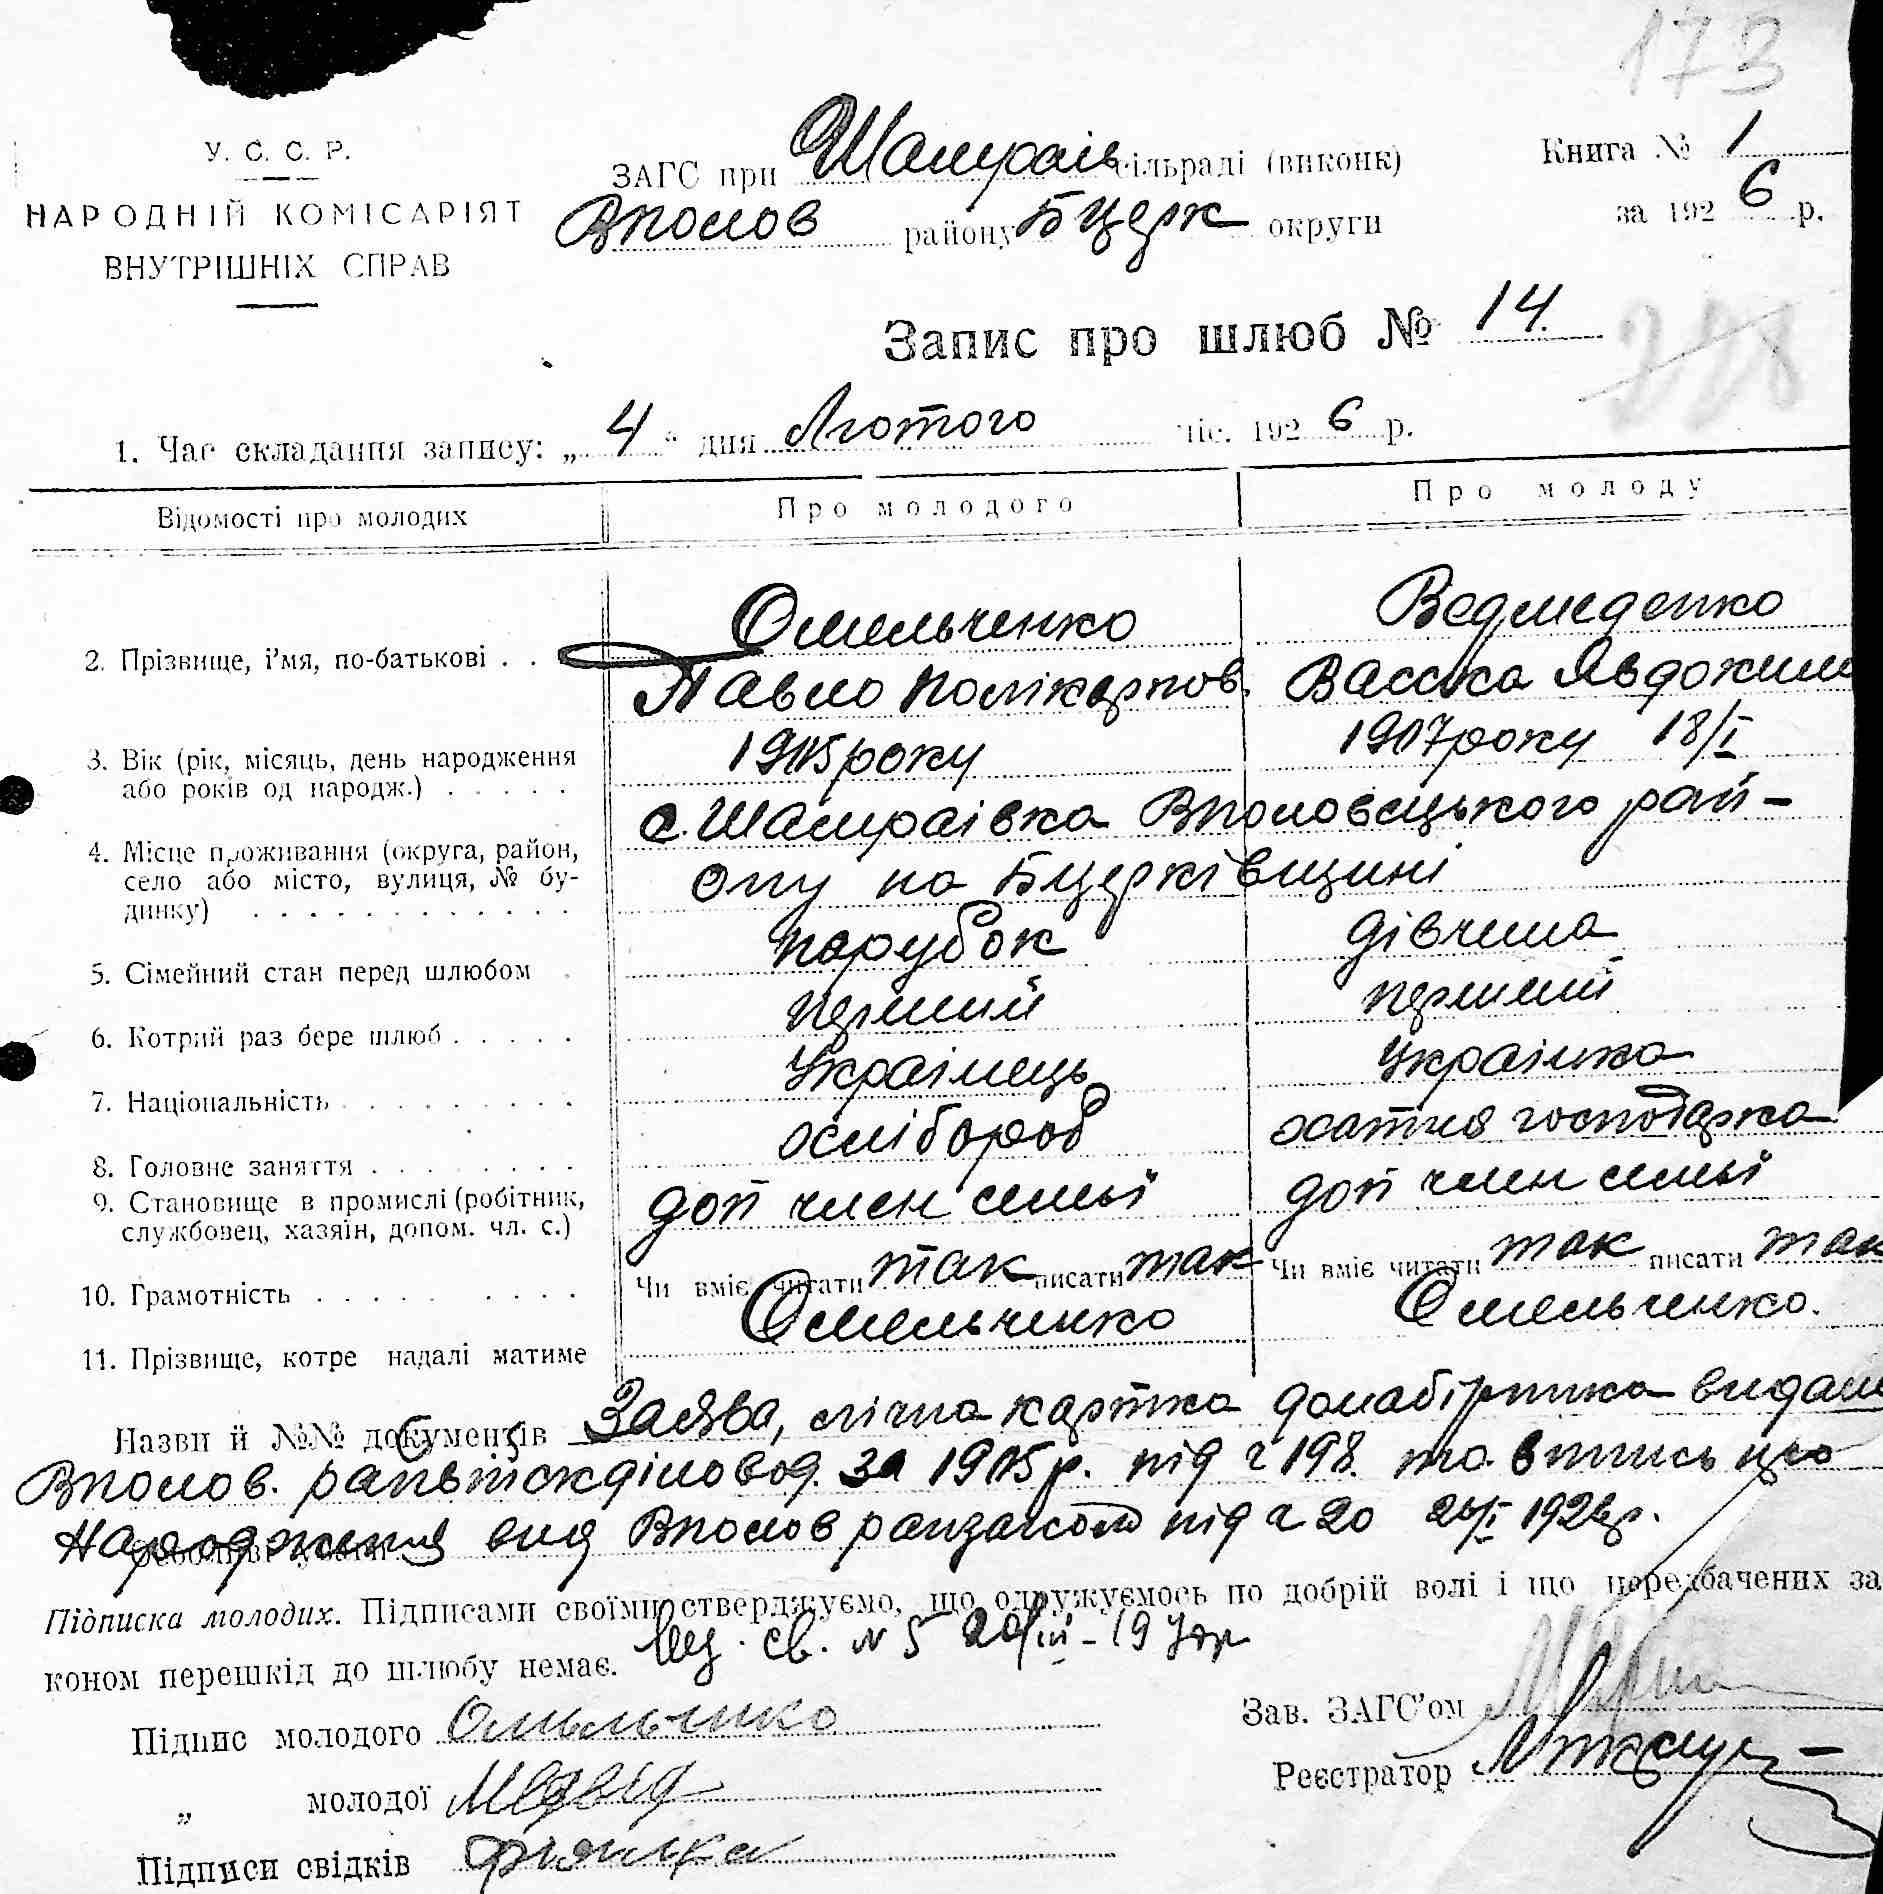 173
У. С. С. Р.
НАРОДНІЙ КОМІСАРІЯТ
ВНУТРІШНІХ СПРАВ
ЗАГС при Шамраїв сільраді (виконк)
Вполов району БЦерк округи
Книга № 1
за 1926 р.
Запис про шлюб № 14.
228
1. Час складання запису: „4“ дня Лютого міс. 1926 р.
Відомості про молодих
Про молодого
Про молоду
2. Прізвище, і’мя, по-батькові . .
Омельченко
Павло Полікарпов.
Ведмеденко
Васска Явдоким
3. Вік (рік, місяць, день народження
або років од народж.) . . . . .
1905 року
1907 року 18/I
4. Місце проживання (округа, район,
село або місто, вулиця, № бу-
динку) . . . . . . . . . . . .
с. Шамраївка Вполовецького рай-
ону на БЦерківщині
5. Сімейний стан перед шлюбом .
парубок
дівчина
6. Котрий раз бере шлюб . . . . .
перший
перший
7. Національність . . . . . . . . .
Українець
Українка
8. Головне заняття . . . . . . . .
хлібороб
хатня господарка
9. Становище в промислі (робітник,
службовец, хазяін, допом. чл. с.)
доп член семьї
доп член семьї
10. Грамотність . . . . . . . . .
Чи вміє читати так писати так
Чи вміє читати так писати так
11. Прізвище, котре надалі матиме
Омельченко
Омельченко.
Назви й №№ документів Заява, лічна картка допабірника видана
Вполов. за 1905 р. під ч 198. та впись про
Народження вид Вполов райзагсом під ч 20 1926 р.
Підписка молодих. Підписами своїми стверджуємо, що одружуємось по добрій волі і що передбачених за
коном перешкід до шлюбу немає.
св. № 5
Підпис молодого Омельченко
„ молодої Медвід
Підписи свідків
Зав. ЗАГС’ом
Реєстратор